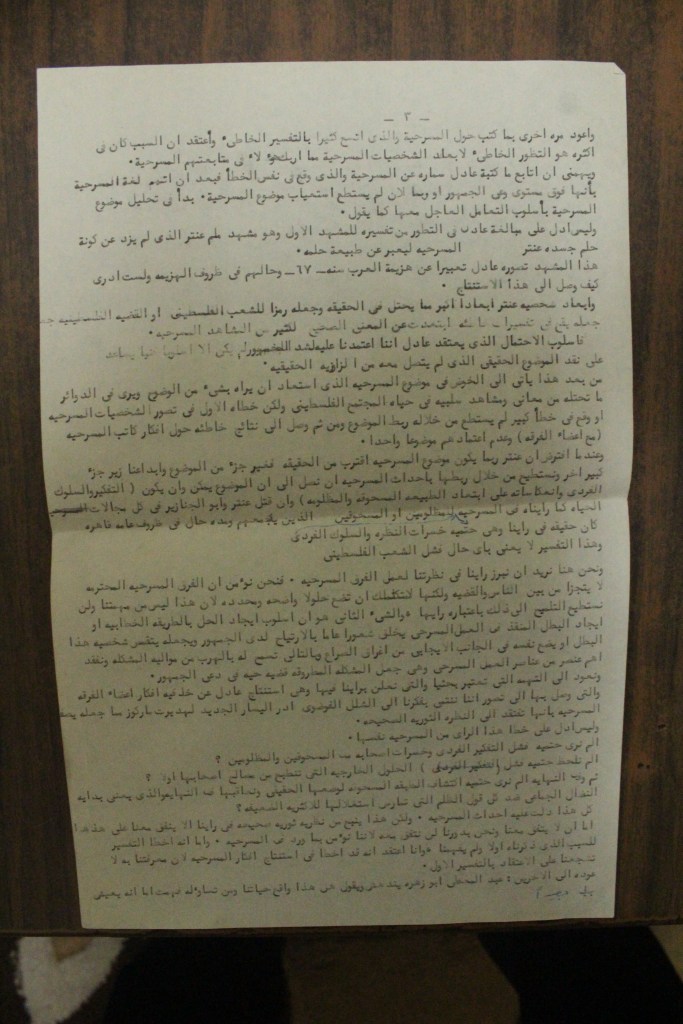 - ٣ -
واعود مره اخرى بما كتب حول المسرحية والذى اتسم كثيرا بالتفسير الخاطى* وأعتقد ان السبب كان فى
اكثره هو التطور الخاطى* لابعاد الشخصيات المسرحية مما اربك* لا* فى متابعتهم المسرحية.
ويهمنى ان اتابع ما كتبة عادل سماره عن المسرحية والذى وقع فى نفس الخطأ فبعد ان اتهم لغة المسرحية
بأنها فوق مستوى وعى الجمهور او ربما لان لم يستطع استعياب موضوع المسرحية. بدأ فى تحليل موضوع
المسرحية بأسلوب التعامل العاجل معها كما يقول.
وليس ادل على مبالغة عادل فى التطور من تفسيره للمشهد الاول وهو مشهد حلم عنتر الذى لم يزد عن كونة
حلم جسده عنتر المسرحيه ليعبر عن طبيعة حلمه.
هذا المشهد تصوره عادل تعبيرا عن هزيمة العرب سنه ـ ٦٧ ـ وحالهم فى ظروف الهزيمه ولست ادرى
كيف وصل الى هذا الاستنتاج .
وابعاد شخصيه عنتر ابعادا اكبر مما يحتل فى الحقيقه وجعله رمزا للشعب الفلسطينى او القضيه الفلسطينيه
جعله يقع فى تفسيرات ابتعدت عن المعنى الصحيح لكثير من المشاهد المسرحيه.
فاسلوب الاحتمال الذى يعتقد عادل اننا اعتمدنا عليه لشد الجمهور لم يكن الا
على نقد الموضوع الحقيقى الذى لم يتصل معه من الزاويه الحقيقيه.
من بعد هذا يأتى الى الخوض فى موضوع المسرحيه الذى استطاع ان يراه بشى* من الوضوح ويرى فى الدوائر
ما تحتله من معانى ومشاهد سلبيه فى حياه المجتمع الفلسطينى ولكن خطاءه الاول فى تصور الشخصيات المسرحيه
او وقع فى خطأ كبير لم يستطع من خلاله ربط الموضوع ومن ثم وصل الى نتائج خاطئه حول افكار كاتب المسرحيه
(مع اعضا* الفرقه) وعدم اعتمادهم موضوعا واحدا.
وعندما افترض ان عنتر ربما يكون موضوع المسرحيه اقترب من الحقيقه فصير جز* من الموضوع وابداعنا زير جز*
كبير اخر ونستطيع من خلال ربطها بأحداث المسرحيه ان نصل الى ان الموضوع يمكن وان يكون (التفكير والسلوك
الفردى وانعكاساته على الطبيعه المسحوقه والمظلومه) وان قتل عنتر وأبو الجنازير فى كل مجالات
الحياه كما رأيناه فى المسرحيه لمظلومين او المسحوقين الذين يجمعهم وحده حال فى ظروف عامه قاهره
كان حقيقه فى راينا وهى حتميه خسرات النظره والسلوك الفردى
وهذا التفسير لا يعنى بأى حال فشل الشعب الفلسطينى
ونحن هنا نريد ان نبرز راينا فى نظرتنا لعمل الفرق المسرحيه . فنحن نؤمن ان الفرق المسرحيه المحترمه
لا يتجزا من بين الناس والقضيه ولكنها لا تكلفك ان تضع حلولا واضحه ومحدده لان هذا ليس من مهمتنا ولن
نستطيع التلميح الى ذلك باعتباره رايها *والشى* الثانى هو ان اسلوب ايجاد الحل بالطريقه الخطابيه او
ايجاد البطل المنقذ فى العمل المسرحى يخلق شعورا عاما بالارتياح لدى الجمهور ويجعله يتقمص شخصيه هذا
البطل او يضع نفسه فى الجانب الايجابى من اطراف الصراع وبالتالى تسمح له بالهرب من مواجهة المشكله ونفقد
اهم عنصر من عناصر العمل المسرحى وهى جعل المشكله المطروقه قضيه حيه فى وعى الجمهور.
ونعود الى التهمه التى تعتبر بحثيا والتى نعلن براينا فيها وهى استنتاج عادل عن خلفيه افكار اعضا* الفرقه
والتى وصل بها الى تصور اننا ننتمى بفكرنا الى الشلل الفوضوى ادر اليسار الجديد لهربرت ماركوز مما جعله يصف
المسرحيه بانها تفتقد الى النظره الثوريه الصحيحه.
وليس ادل على خطا هذا الراى من المسرحيه نفسها.
الم نرى حتميه فشل التفكير الفردى وخسرات اصحابه من المسحوقين والمظلومين ؟
الم نلحظ حتميه فشل (التفكير الفردى) الحلول الخارجيه التى تنطبع من مصالح اصحابها اولا ؟
ثم وفى النهايه الم نرى حتميه اكتشاف الطبقه المسحوقه لوضعها الحقيقى وتحالفها ضد والذى يعنى بدايه
النضال الجماعى ضد كل قوى الظلم التى تمارس استغلالها للاكثريه الضعيفه؟
كل هذا دلت عليه احداث المسرحيه . ولكن هذا ينبع من نظريه ثوريه صحيحه فى راينا الا يتفق معنا على هذا
اما ان لا يتفق معنا ونحن بدورنا لن نتفق معه لاننا نؤمن بما ورد فى المسرحيه . واما انه اخطأ التفسير
للسبب الذى ذكرناه اولا ولم يفهمنا *وانا اعتقد انه قد اخطأ فى استنتاج افكار المسرحيه لان معرفتنا به لا
تشجعنا على الاعتقاد بالتفسير الاول.
عوده الى الاخرين : عبد المعطى ابو زهره يندهش ويقول هل هذا واقع حياتنا ومن تساؤله فهمت اما انه يعيش